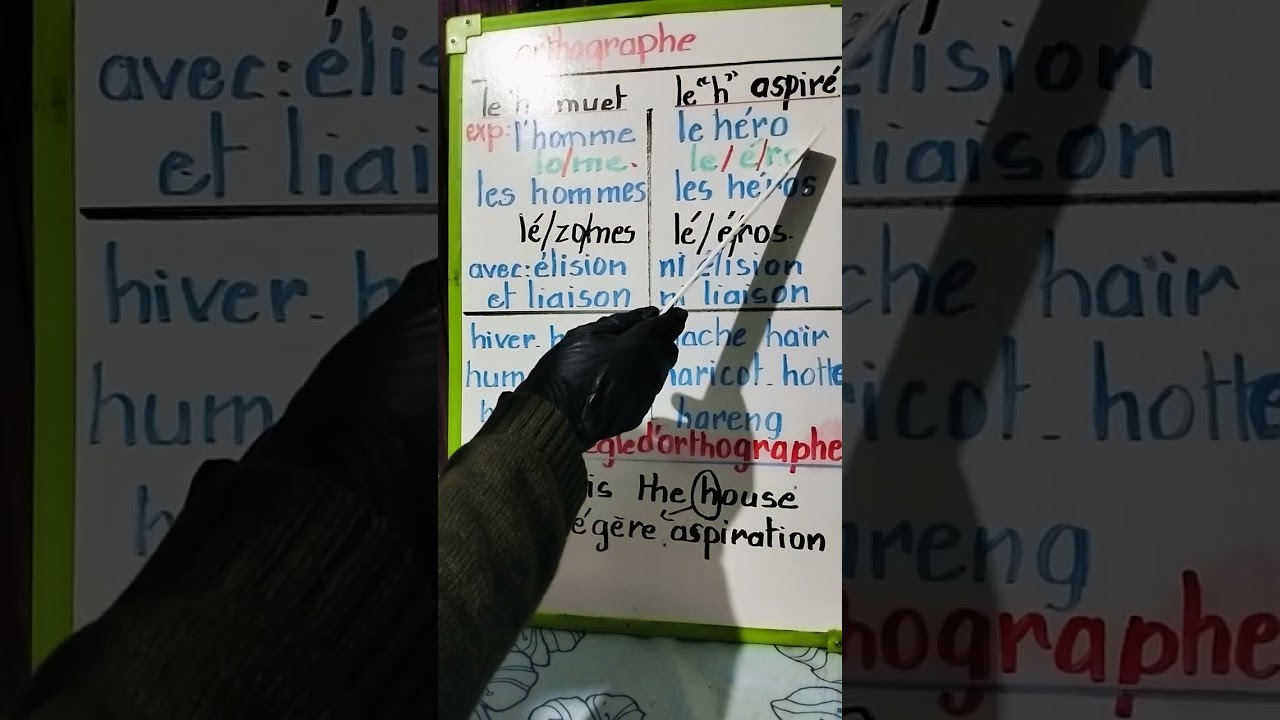 orthographe
le "h" muet
le "h" aspiré
exp: l'homme
le héro
lo/me.
le/é/ro.
les hommes
les héros
lé/zo/mes
lé/é/ros.
avec: élision
et liaison
ni élision
ni liaison
hiver
haïr
hum
haricot - hotte
hareng
d'orthographe
is the house
aspiration